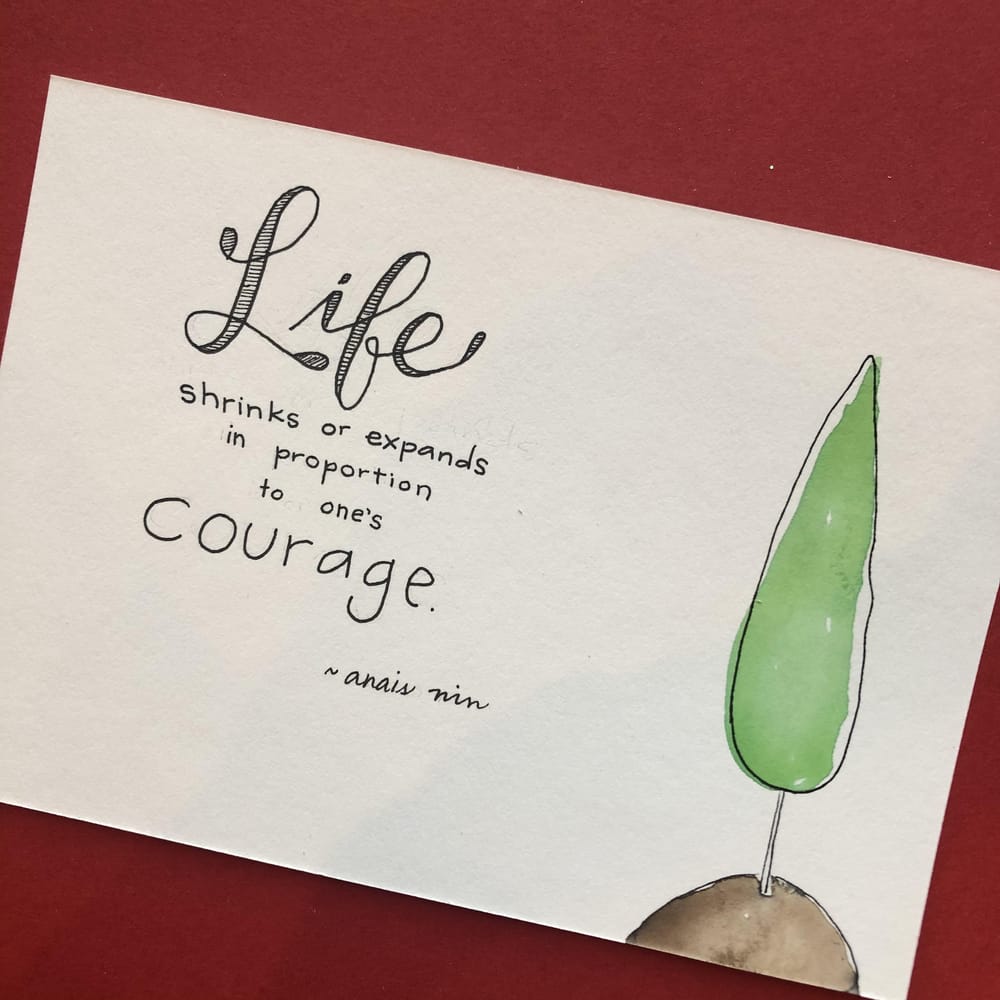 Life
shrinks or expands
in proportion
to one's
courage.
~anais nin